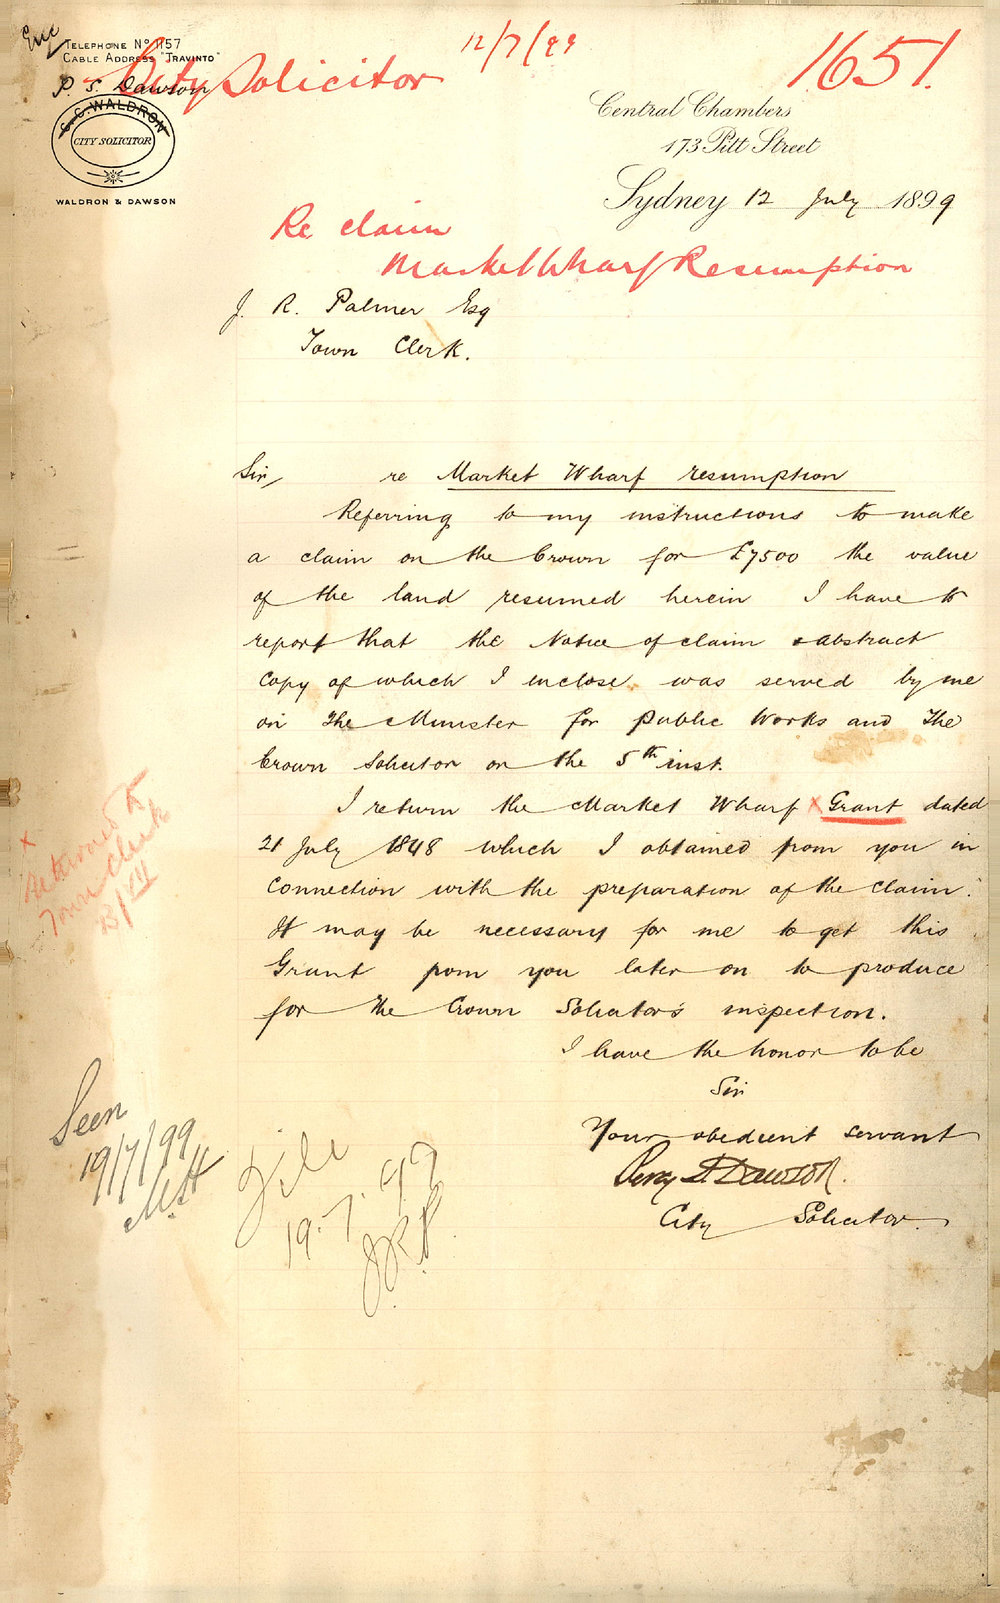 Enc
TELEPHONE No 1157
CABLE ADDRESS "TRAVINTO"
P. S. Dawson
C. C. WALDRON
CITY SOLICITOR
WALDRON & DAWSON
City Solicitor
12/7/99
1651.
Central Chambers
173 Pitt Street
Sydney 12 July 1899
Re claim
Market Wharf Resumption
J. R. Palmer Esq
Town Clerk.
Sir, re Market Wharf resumption
Referring to my instructions to make
a claim on the Crown for £7500 the value
of the land resumed herein I have to
report that the Notice of claim & abstract
copy of which I inclose was served by me
on the Minister for Public Works and the
Crown Solicitor on the 5th inst.
I return the Market Wharf x Grant dated
21 July 1848 which I obtained from you in
connection with the preparation of the claim.
It may be necessary for me to get this
Grant from you later on to produce
for the Crown Solicitor's inspection.
I have the honor to be
Sir
Your obedient servant
Percy S Dawson.
City Solicitor.
x
Returned to
Town Clerk
13/VII
Seen
19/7/99
File
19.7.99
J.R.P.